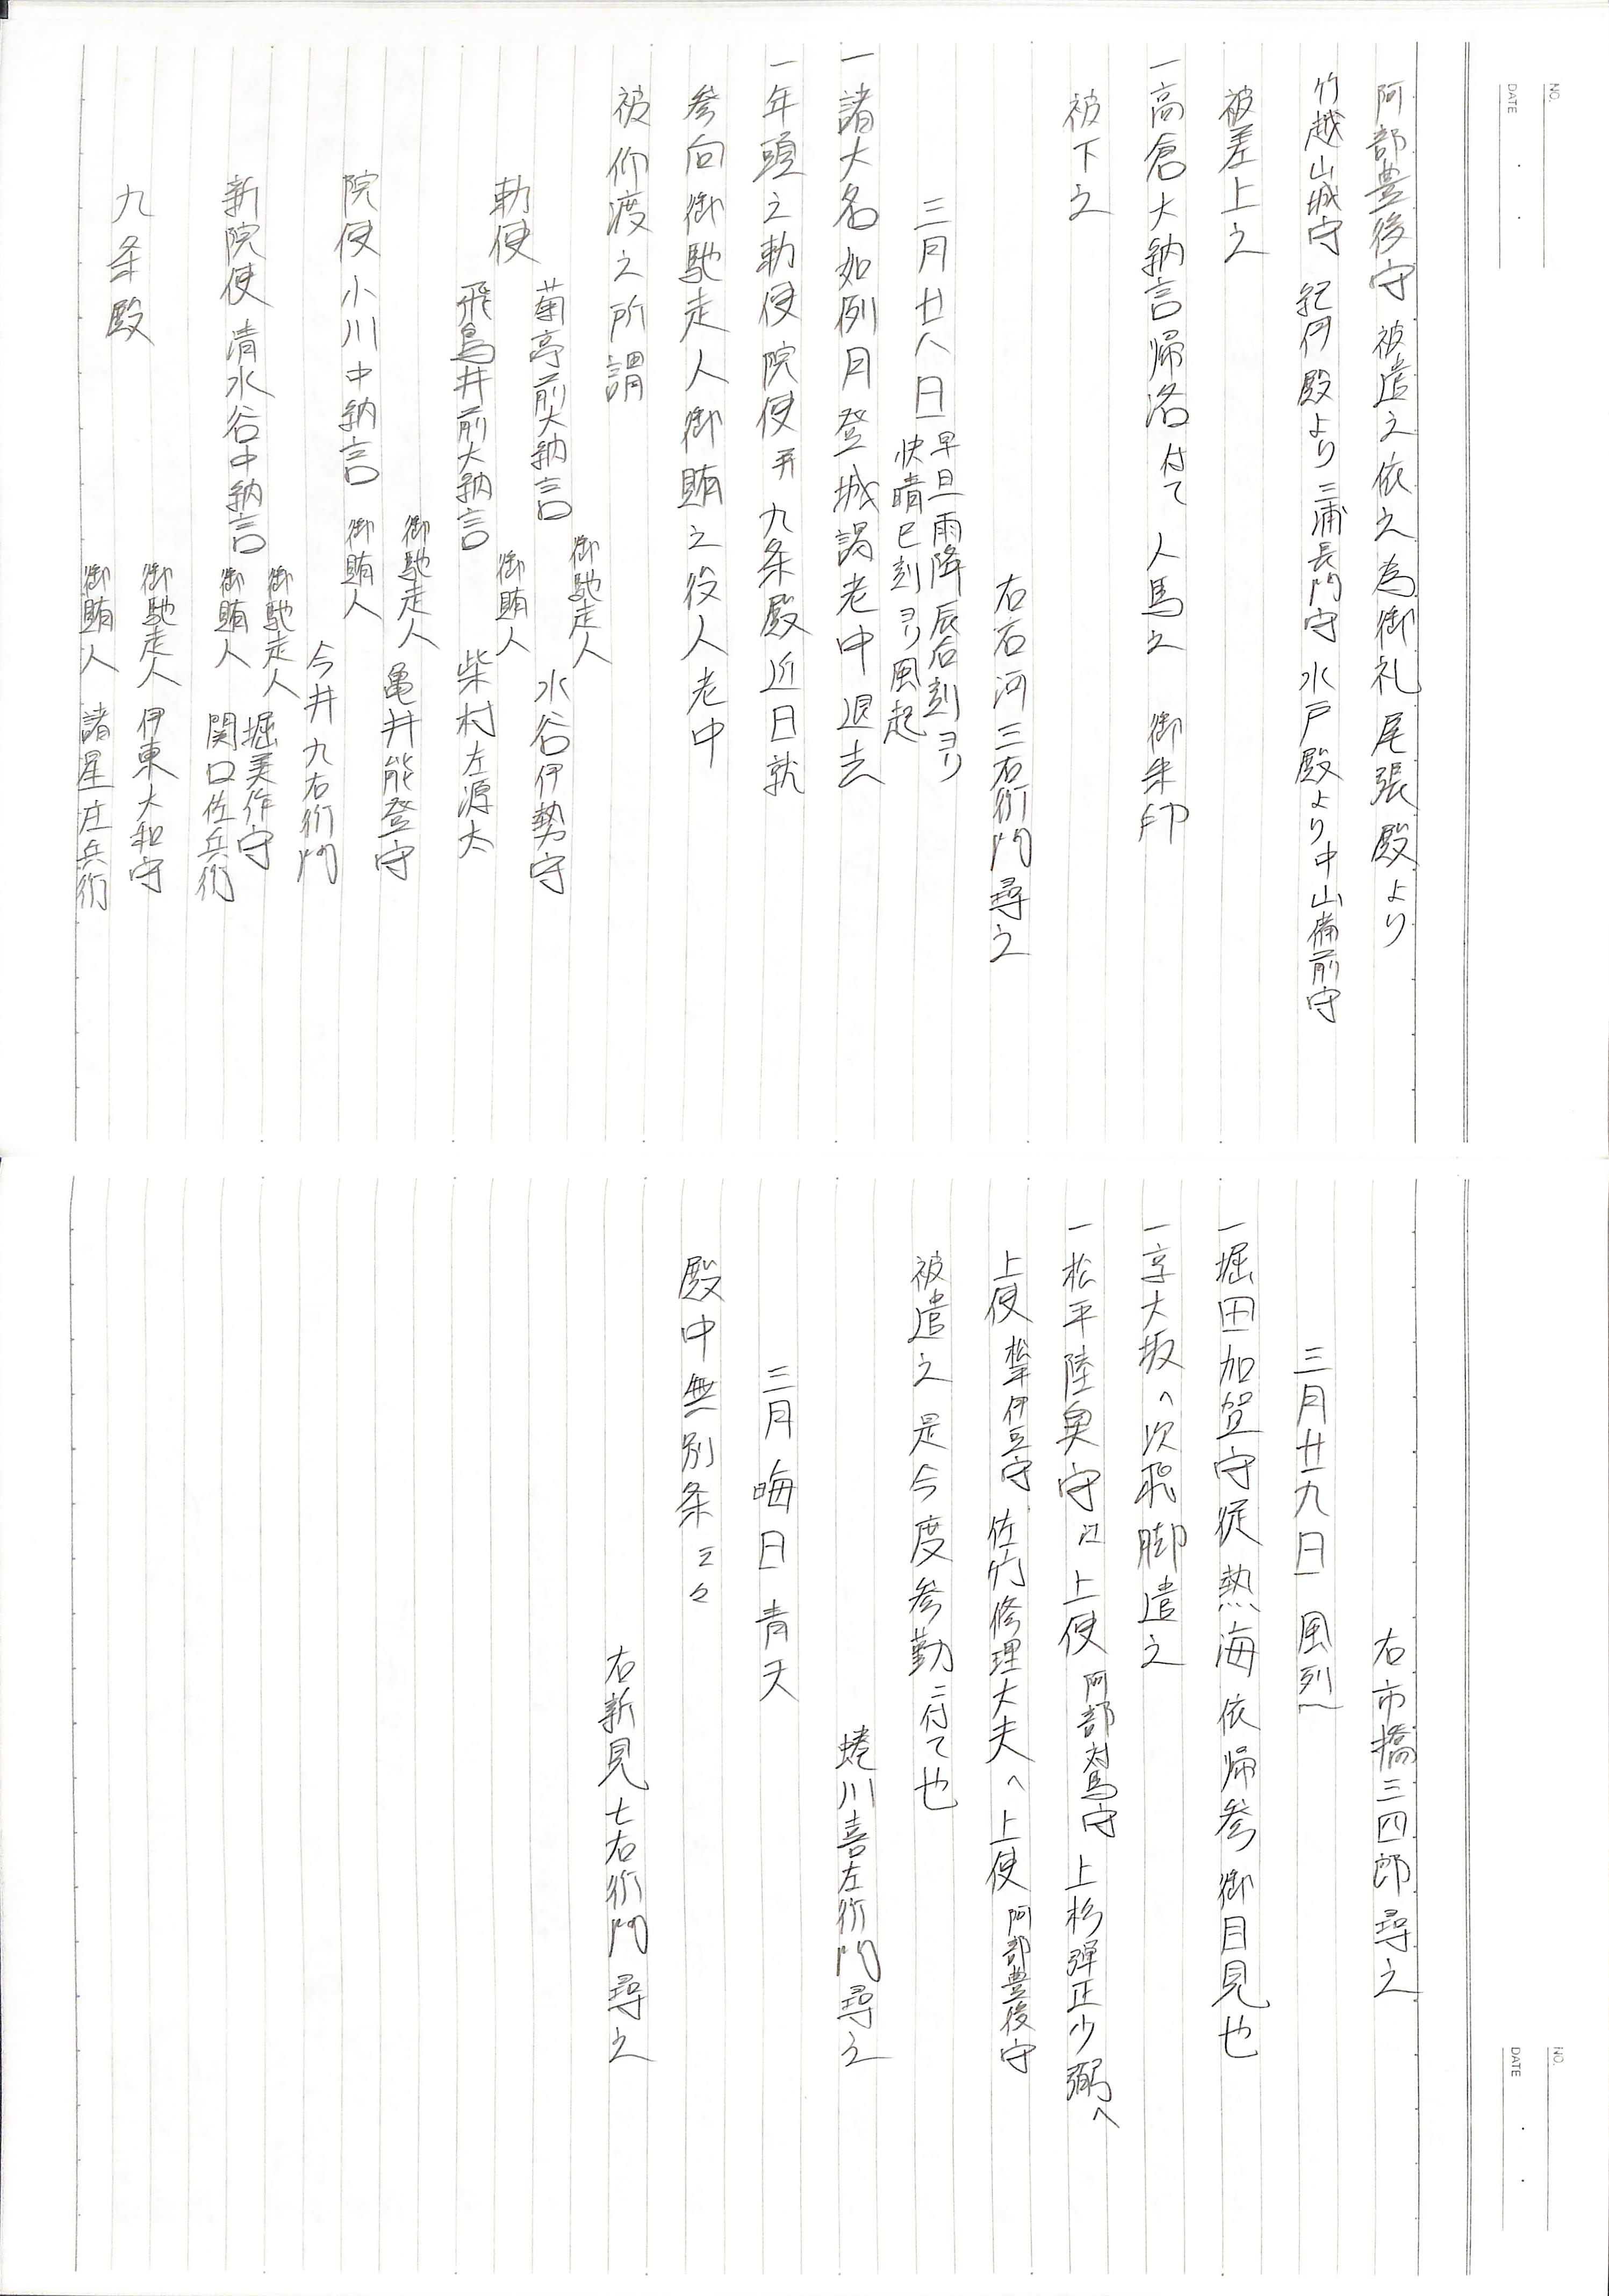 NO.
DATE
阿部豊後守 被遣之依之為御礼 尾張殿より
竹越山城守 紀伊殿より三浦長門守 水戸殿より中山備前守
被差上之
一高倉大納言帰洛付て 人馬之 御朱印
被下之
右石河三右衛門尋之
三月廿八日 早旦雨降辰后刻ヨリ
快晴巳刻ヨリ風起
一諸大名如例月登城謁老中退去
一年頭之勅使院使并九条殿近日就
参向御馳走人御賄之役人老中
被仰渡之所謂
勅使 菊亭前大納言 御馳走人 水谷伊勢守
飛鳥井前大納言 御賄人 柴村左源太
院使 小川中納言 御馳走人 亀井能登守
御賄人 今井九右衛門
新院使 清水谷中納言 御馳走人 堀美作守
御賄人 関口佐兵衛
九条殿 御馳走人 伊東大和守
御賄人 諸星庄兵衛
NO.
DATE
右市橋三四郎尋之
三月廿九日 風烈
一堀田加賀守従熱海依帰参御目見也
一京大坂へ次飛脚遣之
一松平陸奥守江上使 阿部対馬守 上杉弾正少弼へ
上使 松平伊豆守 佐竹修理大夫へ上使 阿部豊後守
被遣之是今度参勤ニ付て也
蜷川喜左衛門尋之
三月晦日 青天
殿中無別条云々
右新見七右衛門尋之